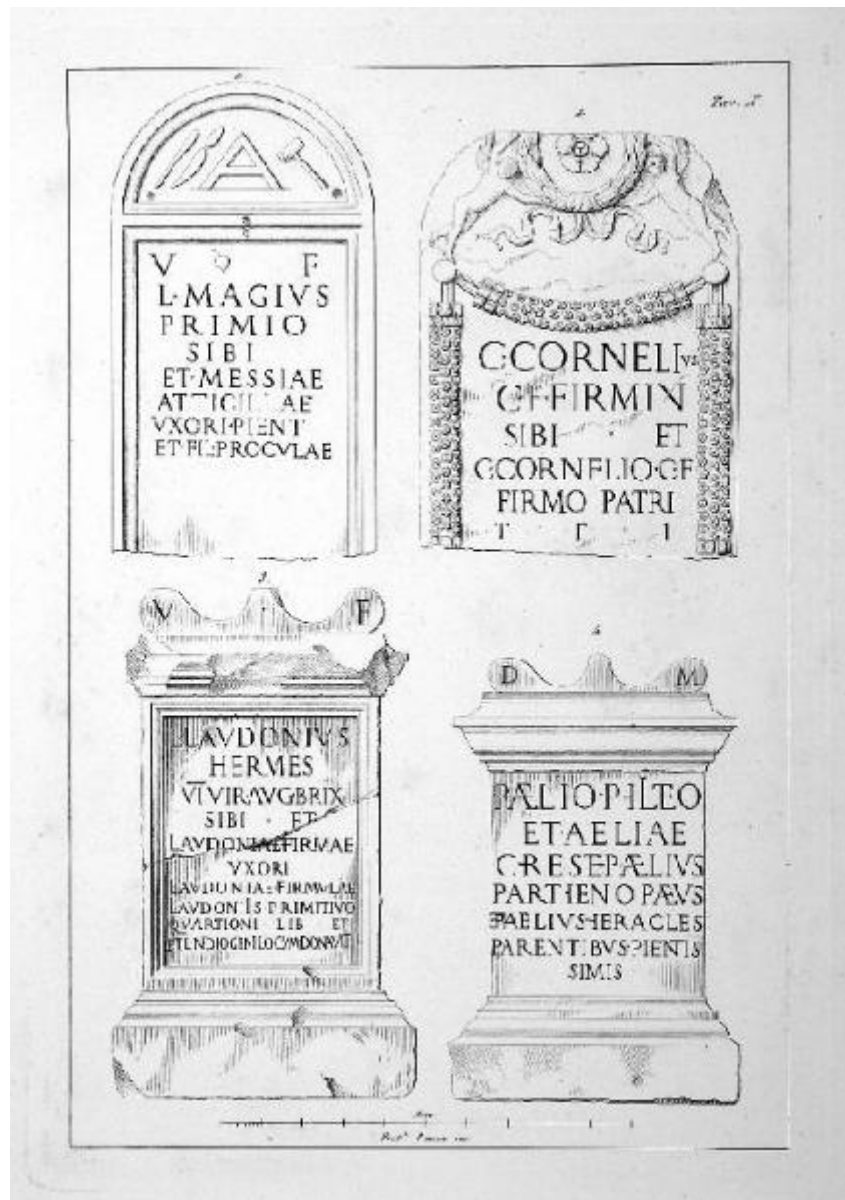 V F
L·MAGIVS
PRIMIO
SIBI
ET·MESSIAE
VXORI·PIENT
ET·FIL·PROCVLAE
2.
C·CORNELIVS
C·F·FIRMIN
SIBI ET
C·CORNELIO·C·F
FIRMO PATRI
3.
V F
L·LAVDONIVS
HERMES
VI·VIR·AVG·BRIX
SIBI · ET
LAVDONIAE·FIRMAE
VXORI
LAVDONIAE·FIRMVLAE
LAVDONIS PRIMITIVO
QVARTIONI LIB ET
4.
D M
P·ÆLIO·PHILETO
ET·AELIAE
CREST·P·ÆLIVS
PARTHENOPÆVS
ET·P·AELIVS·HERACLES
PARENTIBVS·PIENTIS
SIMIS